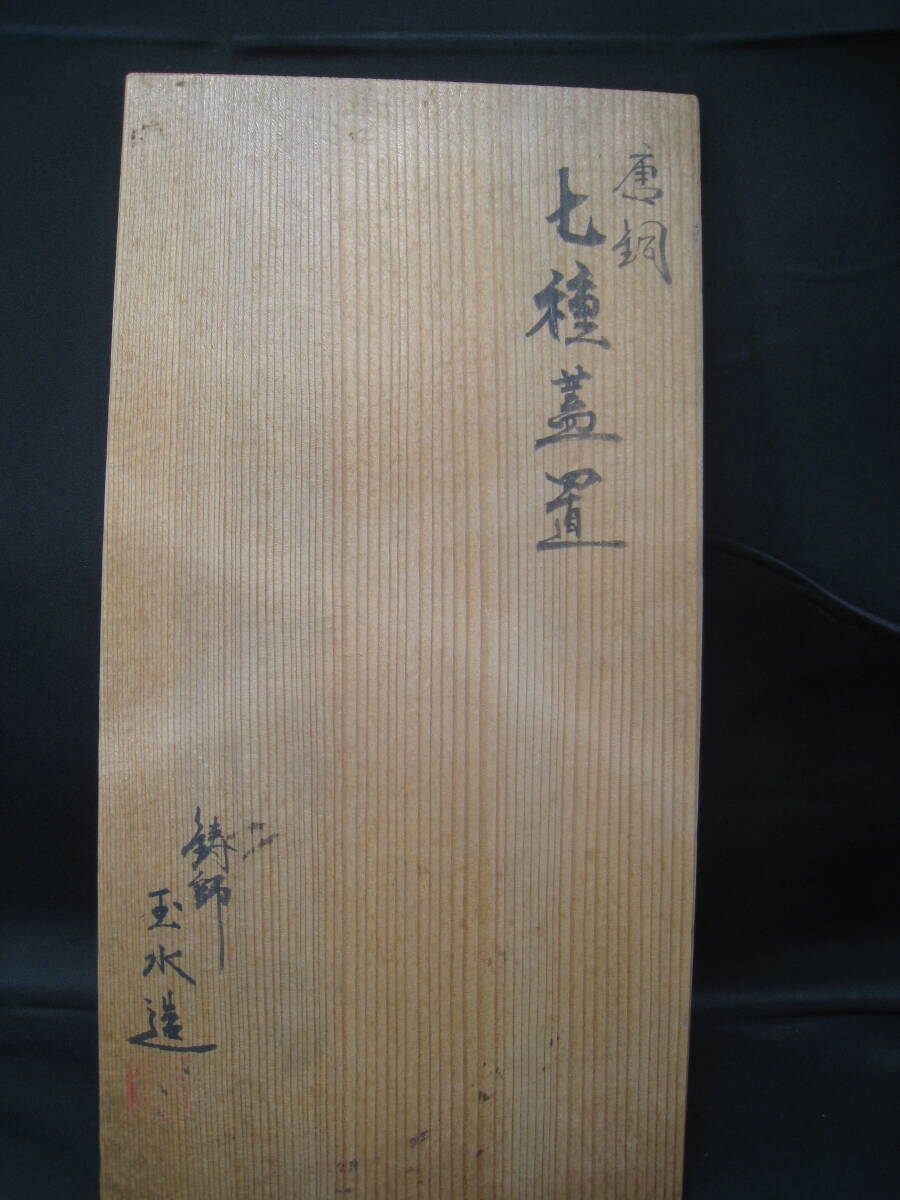 唐銅
七種蓋置
鋳師
玉水造